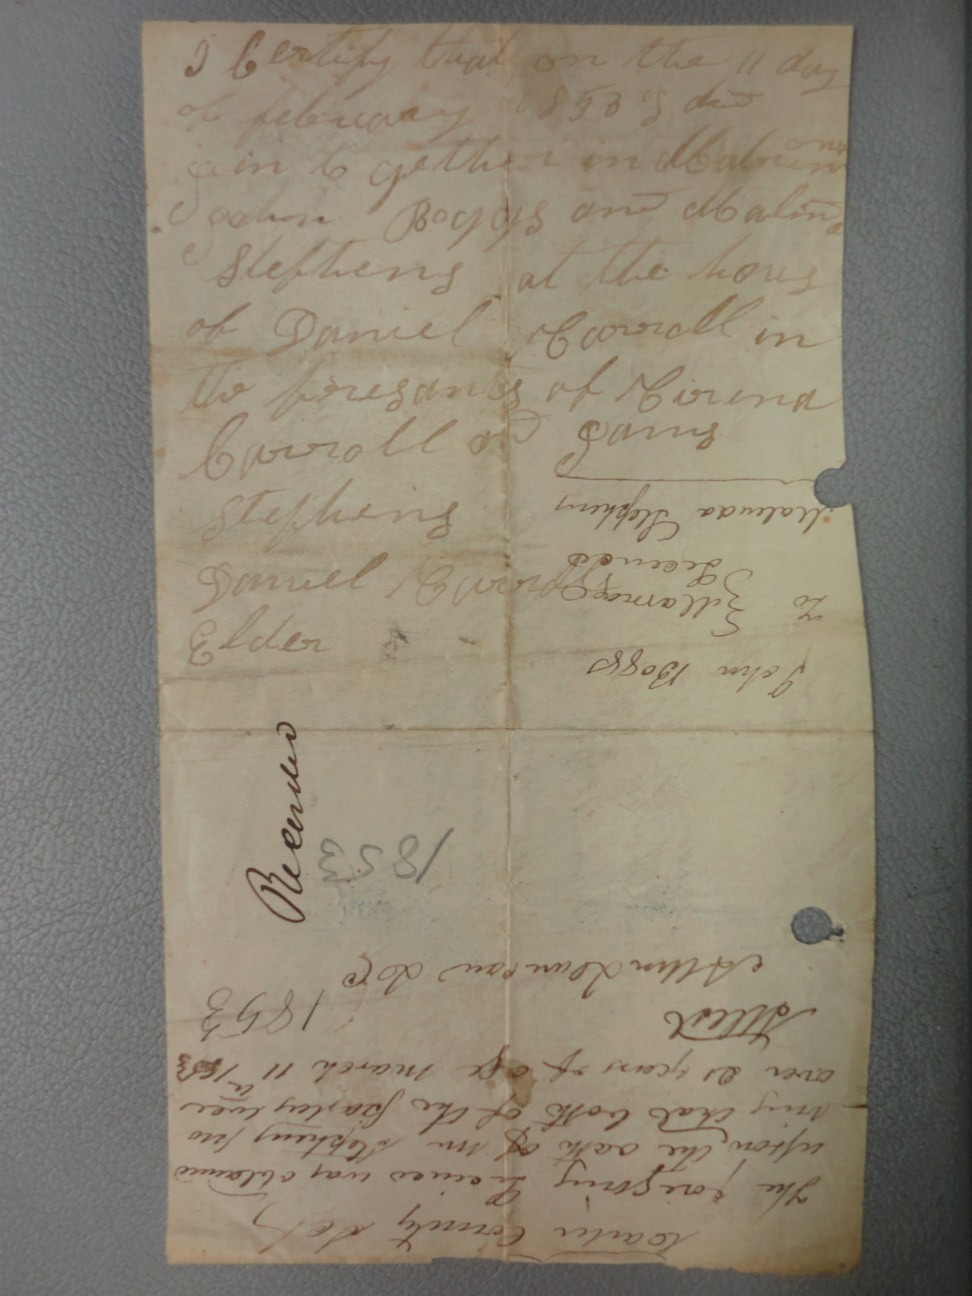 I Certify that on the 11 day
of february 1853 did
join to gether in Matrimon
John Boggs and Malind
Stephens at the hous
of Daniel Carroll in
the presants of
Carroll
Stephens
Daniel Carroll
Elder
John Boggs
To
Licence
Malinda Stephens
Recorded
1853
Carter County Sct
The foregoing Licince was obtained
upon the oath of Wm Stephens pro
ving that both of the parties were
over 21 years of age March 11th 1853
Attest 1853